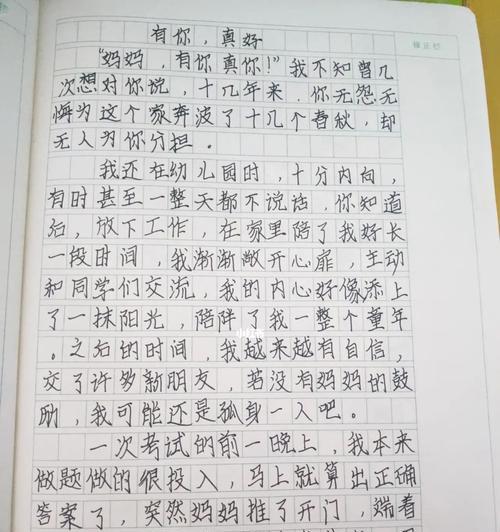 有你，真好
修正栏
“妈妈，有你真你！”我不知曾几
次想对你说，十几年来，你无怨无
悔为这个家奔波了十几个春秋，却
无人为你分担。
我还在幼儿园时，十分内向，
有时甚至一整天都不说话，你知道
后，放下工作，在家里陪了我好长
一段时间，我渐渐敞开心扉，主动
和同学们交流，我的内心好像添上
了一抹阳光，陪伴了我一整个童年
小红书
。之后的时间，我越来越有自信，
交了许多新朋友，若没有妈妈的鼓
励，我可能还是孤身一人吧。
一次考试的前一晚上，我本来
做题做的很投入，马上就算出正确
答案了，突然妈妈推了开门，端着